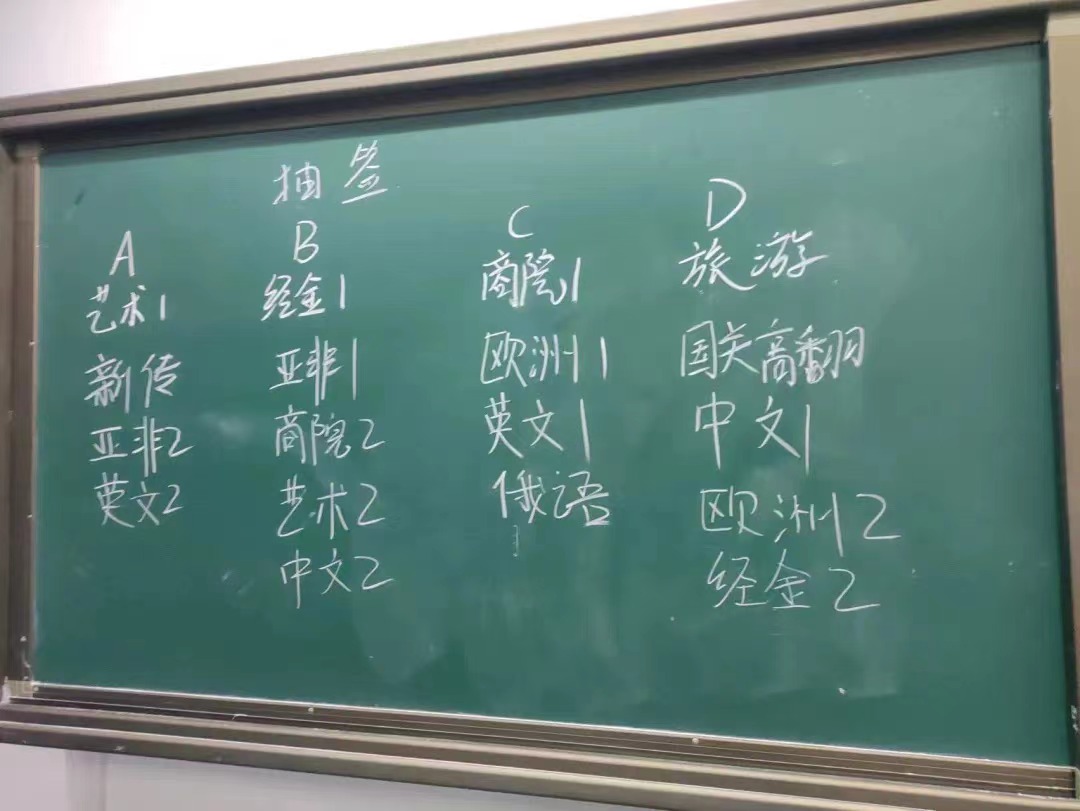 抽签
A
艺术1
新传
亚非2
英文2
B
经金1
亚非1
商院2
艺术2
中文2
C
商院1
欧洲1
英文1
俄语
D
旅游
国关高翻
中文1
欧洲2
经金2